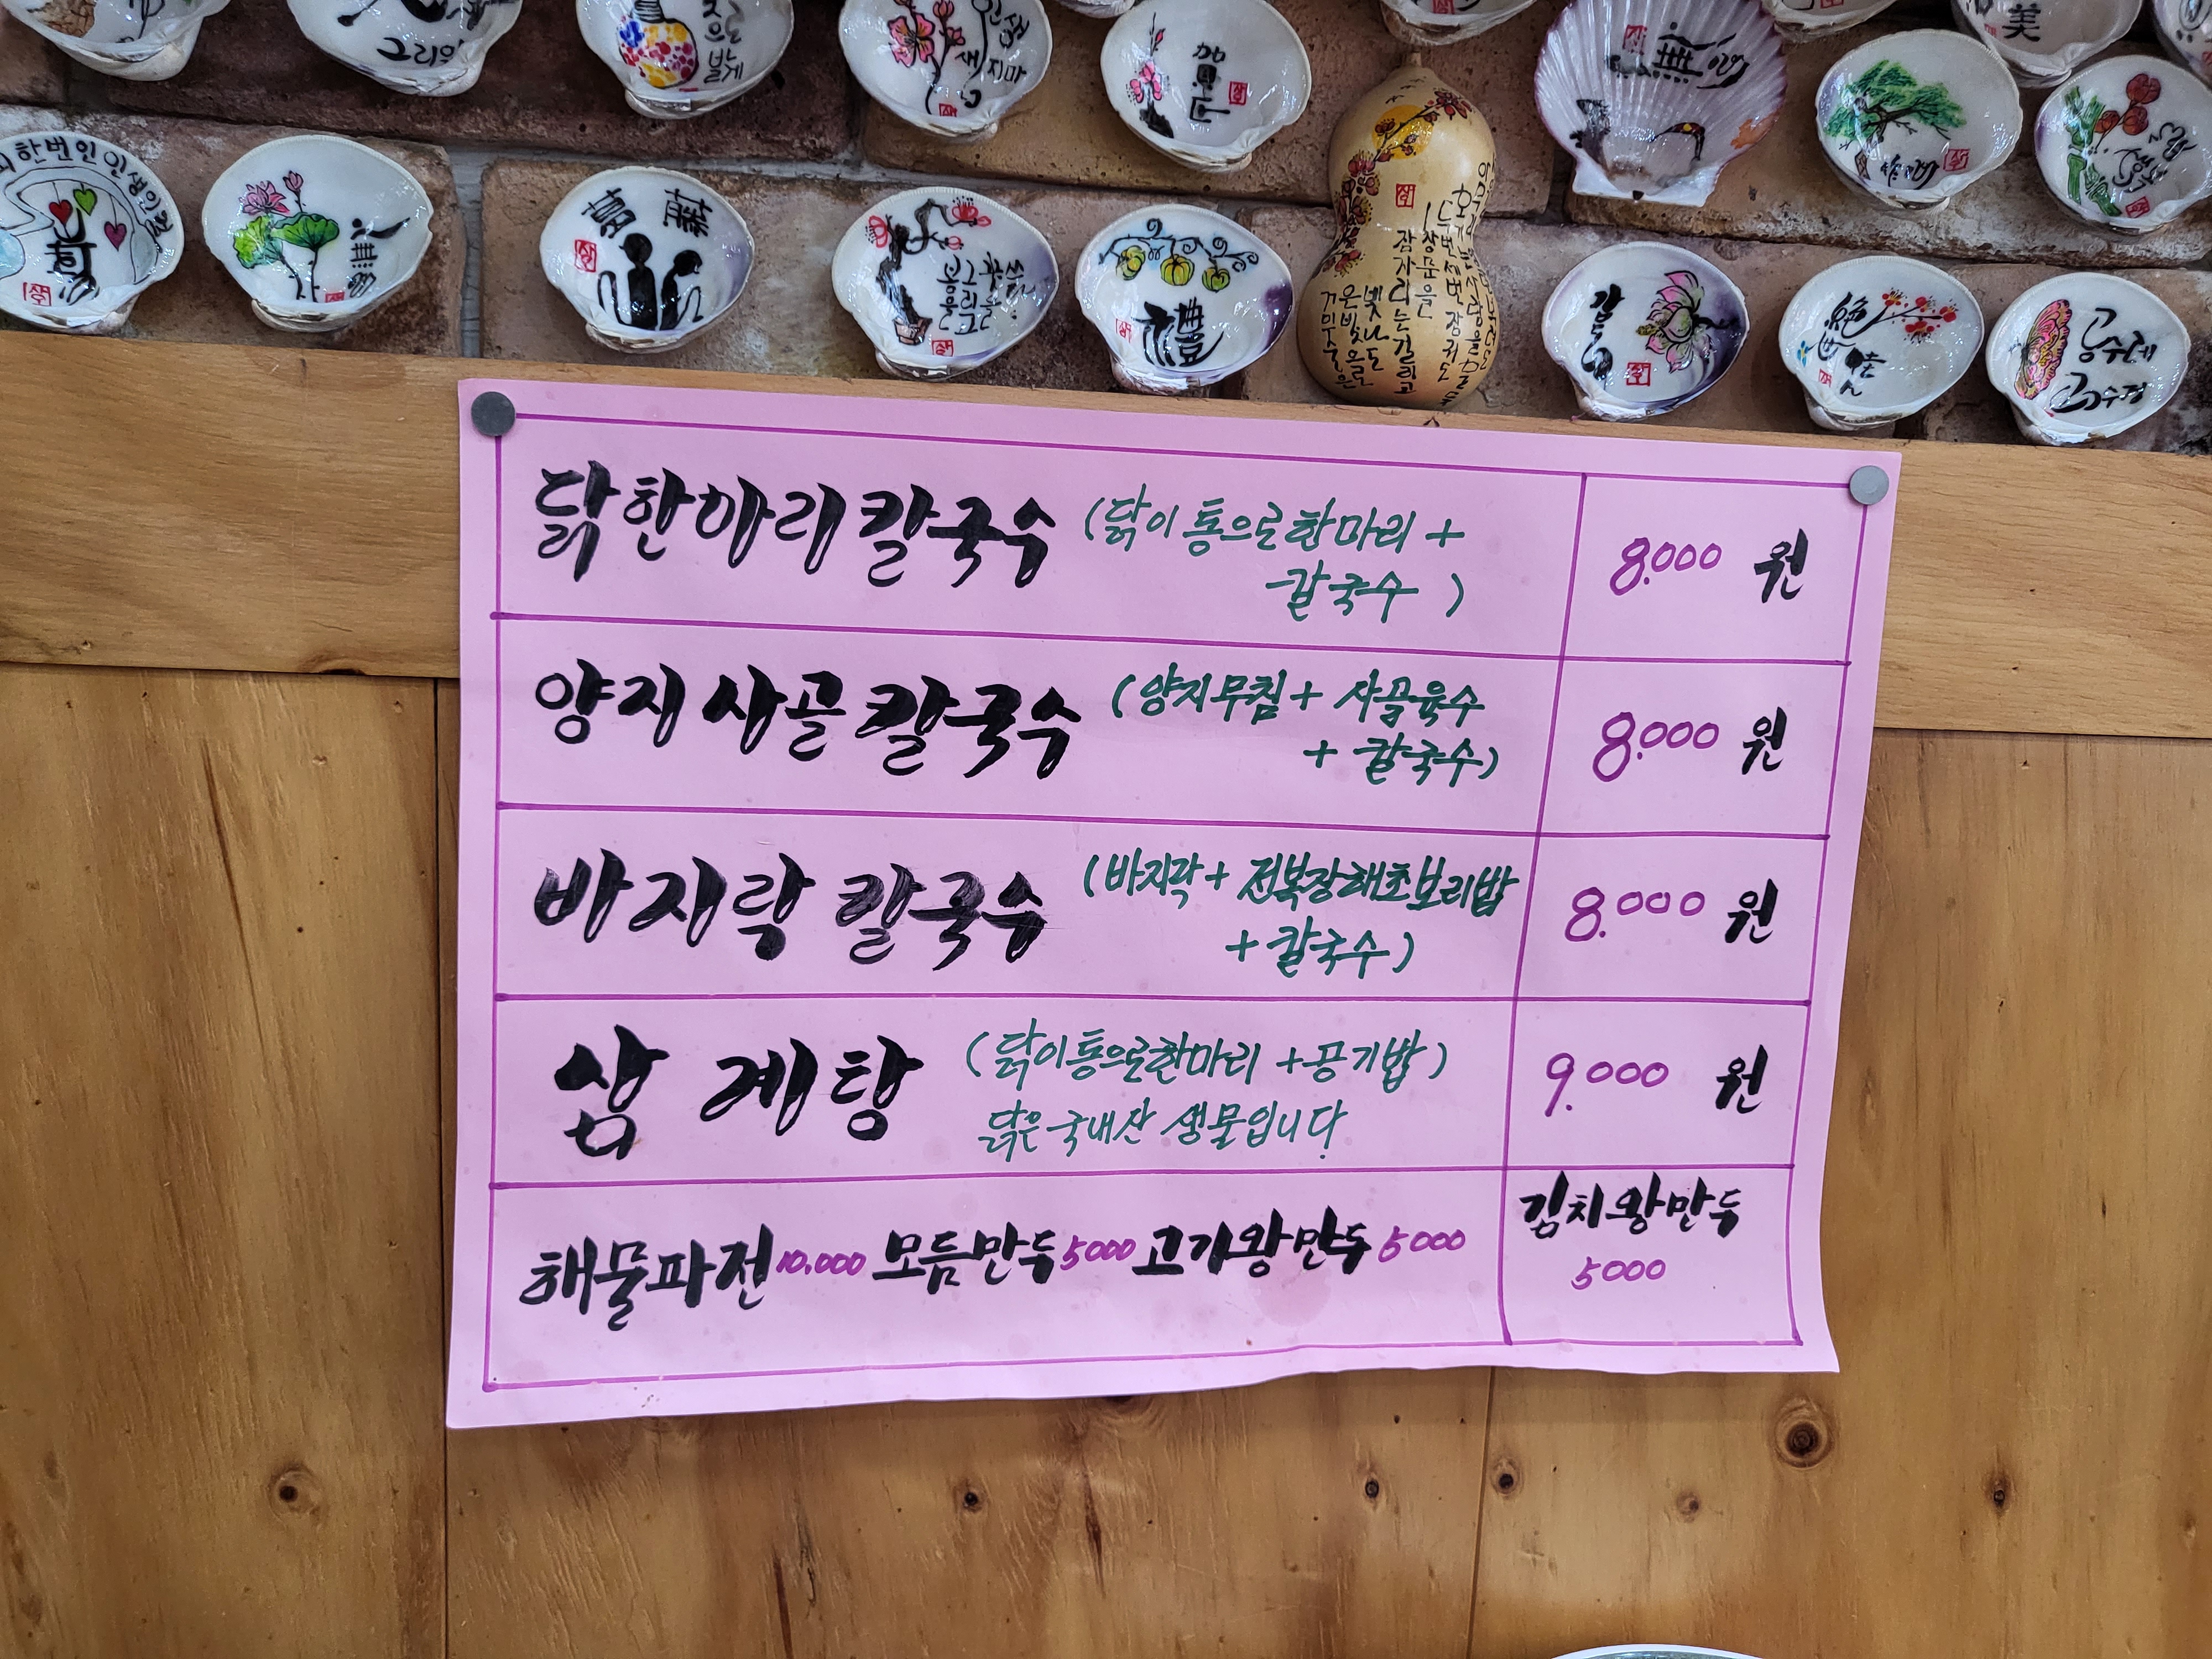 그리움
인생
새지마
美
加
한번인인생의길
無
葛藤
禮
감동
絶
공수레
공수경
닭한마리칼국수 (닭이통으로한마리 +
칼국수)
8.000 원
양지사골칼국수 (양지무침 + 사골육수
+ 칼국수)
8.000 원
바지락 칼국수 (바지락 + 전복장해초보리밥
+ 칼국수)
8.000 원
삼계탕 (닭이통으로한마리 + 공기밥)
닭은국내산 생물입니다.
9.000 원
해물파전 10.000 모듬만두 5000 고기왕만두 5000
김치왕만두
5000